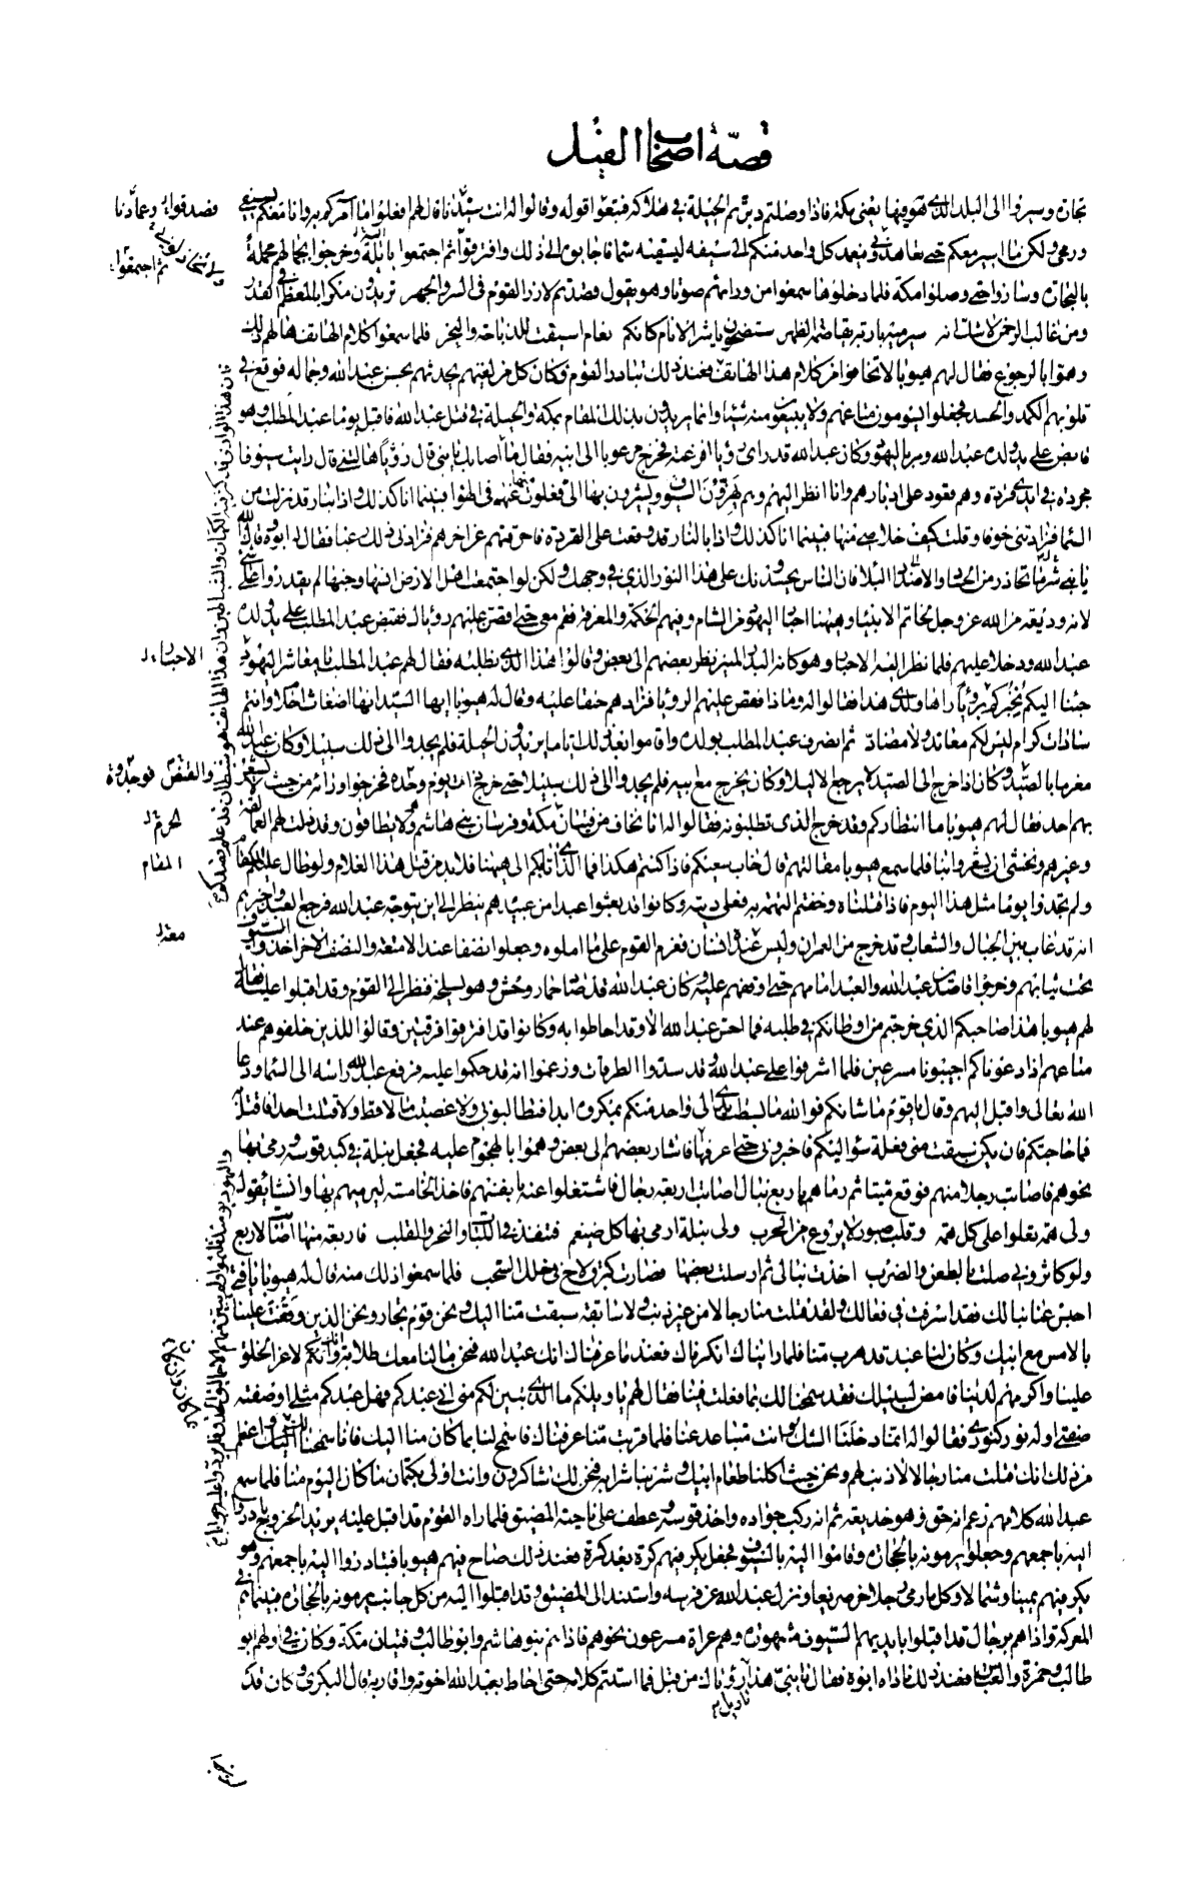 قصة اصحاب الفيل
تجارة وسيروا الى البلد الذى هو فيها يعنى مكة فاذا وصلتم دبرتم الحيلة فى هلاكه فتبعوا قوله وقالوا له انت سيدنا قال لهم افعلوا ما آمركم به وانا معكم بسيفى
ورمحى ولكن ما اسير معكم حتى تعاهدونى يعمد كل واحد منكم الى سيفه ليسقيه سما فاجابوه الى ذلك وافترقوا ثم اجتمعوا وخرجوا بجمالهم محملة
بالتجارة وساروا حتى وصلوا مكة فلما دخلوها سمعوا من ورائهم صوتا وهو يقول قصدتم لازر القوم فى السر والجهر تريدون مكرا بالمعظم فى القدر
ومن غالب الرحمن لا شك انه ستضحون يا شر الانام كانكم نعام اسيقت للذباحة والنحر فلما سمعوا كلام الهاتف هالهم ذلك
وهموا بالرجوع فقال لهم هيوبا لا تخافوا من كلام هذا الهاتف فعند ذلك تبادر القوم وكان كل من لقيهم يحدثهم بحسن عبد الله وجماله فوقع فى
قلوبهم الكمد والحسد فجعلوا يسومون متاعهم ولا يبيعون منه شيئا وانما يريدون بذلك المقام بمكة والحيلة فى قتل عبد الله فاقبل يوما عبد المطلب وهو
قابض على يد ولده عبد الله ومر باليهود وكان عبد الله قد راى رؤيا افزعته فخرج مرعوبا الى ابيه فقال ما اصابك يا بنى قال رؤيا هالتنى قال رايت سيوفا
مجردة فى ايدى قردة وهم قعود على ادبارهم وانا انظر اليهم وهم يهزون السيوف ويشيرون بها الى فعلوت عنهم فى الهوا فبينما انا كذلك واذا بنار قد نزلت من
السما فزادتنى خوفا وقلت كيف خلاصى منها فبينما انا كذلك واذا بالنار قد وقعت على القردة فاحرقتهم عن اخرهم فزادنى ذلك رعبا فقال له ابوه وقاك الله
يا بنى شر ما تحاذر من الحساد والاضداد فان الناس يحسدونك على هذا النور الذى فى وجهك ولكن لو اجتمعت اهل الارض انسها وجنها لم يقدروا على شئ
لانه وديعة من الله عز وجل لخاتم الانبيا وههنا احبار اليهود من الشام وفيهم الحكمة والمعرفة فقم معى حتى اقص عليهم رؤياك فقبض عبد المطلب على يد ولده
عبد الله ودخلا عليهم فلما نظر اليه الاحبار وهو كانه البدر المنير نظر بعضهم الى بعض وقالوا هذا الذى نطلبه فقال لهم عبد المطلب يا معاشر اليهود
جئنا اليكم نخبركم برؤيا راها ولدى هذا فقالوا له وما ذا فقص عليهم الرؤيا فزادهم حنقا عليه وقال له هيوبا ايها السيد انها اضغاث احلام وانتم
سادات كرام ليس لكم معاند ولا مضاد ثم انصرف عبد المطلب بولده واقاموا بعد ذلك اياما يريدون الحيلة فلم يجدوا الى ذلك سبيلا وكان عبد الله
مغرما بالصيد وكان اذا خرج الى الصيد لا يرجع الا ليلا وكان يخرج مع ابيه فلم يجدوا الى ذلك سبيلا حتى خرج ذات يوم وحده فخرجوا وراءه من حيث لا يشعر
بهم احد فقال لهم هيوبا ما انتظاركم وقد خرج الذى تطلبونه فقالوا له انا نخاف من فتيان مكة وفرسان بنى هاشم ولا يطاقون وقد ذلت لهم العمالقة
وغيرهم ونخشى ان يشعروا بنا فلما سمع هيوبا مقالتهم قال خاب سعيكم فاذا كنتم هكذا فما الذى اتى بكم الى ههنا فلا بد من قتل هذا الغلام ولو طال عليكم المقام
ولم تجدوا يوما مثل هذا اليوم فاذا قتلناه وخفتم التهمة به فعلى ديته وكانوا قد بعثوا عبدا من عبيدهم ينظر الى اين يتوجه عبد الله فرجع العبد واخبرهم
انه قد غاب بين الجبال والشعاب وقد خرج من العمران وليس عنده انسان فعزم القوم على ما املوه وجعلوا نصفا عند الامتعة والنصف الاخر اخذوا السيوف
تحت ثيابهم وخرجوا قاصدين عبد الله والعبد امامهم حتى اوقفهم عليه وكان عبد الله قد صاد حمار وحش وهو يسلخه فنظر الى القوم وقد اقبلوا عليه فقال
لهم هيوبا هذا صاحبكم الذى خرجتم من اوطانكم فى طلبه فما احس عبد الله الا وقد احاطوا به وكانوا قد افترقوا فرقتين وقالوا للذين خلفوهم عند
متاعهم اذا دعوناكم اجيبونا مسرعين فلما اشرفوا على عبد الله وقد سدوا الطرقات وزعموا انه قد حكموا عليه فرفع عبد الله راسه الى السما ودعا
الله تعالى واقبل اليهم وقال يا قوم ما شانكم فوالله ما بسطت يدى الى واحد منكم بمكروه ابدا فتطالبونى ولا غصبت مالا قط ولا قتلت احدا فاقتل
فما حاجتكم فان يكن سبقت منى فعلة سؤ اليكم فاخبرونى حتى اعرفها فاشار بعضهم الى بعض وهموا بالهجوم عليه فجعل نبلة فى كبد قوسه ورمى بها
نحوهم فاصابت رجلا منهم فوقع ميتا ثم رماهم باربع نبال اصابت اربعة رجال فاشتغلوا عنه بانفسهم فاخذ الخامسة ليرميهم بها وانشا يقول
ولى همة يعلوا على كل همة وقلب صبور لا يروع من الحرب ولى نبلة ارمى بها كل ضيغم فتنفذ فى اللبات والنحر والقلب فاربعة منها اصابت لاربع
ولو كاثرونى صلت بالطعن والضرب اخذت نبالى ثم ارسلت بعضها فصارت كبرق لاح فى خلل السحب فلما سمعوا ذلك منه قال له هيوبا يا فتى
احبس عنا نبالك فقد اسرفت فى فعالك ولقد قتلت منا رجالا من غير ذنب ولا سابقة سبقت منا اليك ونحن قوم تجار ونحن الذين وقفت علينا
بالامس مع ابيك وكان لنا عبد قد هرب منا فلما رايناك انكرناك فعند ما عرفناك انك عبد الله فنحن ما لنا معك طلابة وانكم لاعز الخلق
علينا واكرمهم لدينا فامض لسبيلك فقد سمحنا لك بما فعلت فينا فقال لهم يا ويلكم ما الذى تبين لكم منى انى عبدكم فهل عبدكم مثلى او صفته
صفتى او له نور كنورى فقالوا له انما دخلنا الشك وانت متباعد عنا فلما قربت منا عرفناك فاسمح لنا بما كان منا اليك فانا سمحنا لك واعظم
من ذلك انك قتلت منا رجالا لا ذنب لهم ونحن حيث اكلنا طعام ابيك وشربنا شرابه فنحن لك شاكرون وانت اولى بكتمان ما كان اليوم منا فلما سمع
عبد الله كلامهم زعم انه حق وهو خديعة ثم انه ركب جواده واخذ قوسه وعطف على ناحية المضيق فلما راه القوم قد اقبل عليه يريد الخروج بادروا
اليه باجمعهم وجعلوا يرمونه بالحجارة وقاموا اليه بالسيوف فجعل يكر فيهم كرة بعد كرة فعند ذلك صاح فيهم هيوبا فتبادروا اليه باجمعهم وهو
يكر فيهم يمينا وشمالا وكل ما رمى رجلا خر صريعا ونزل عبد الله عن فرسه واستند الى المضيق وقد اقبلوا اليه من كل جانب يرمونه بالحجارة فبينما هم فى
المعركة واذا هم برجال قد اقبلوا بايديهم السيوف مشهورة وهم عراة مسرعون نحوهم فاذا هم بنو هاشم وابو طالب وفتيان مكة وكان فى اولهم ابو
طالب وحمزة والعباس فعند ذلك ناداه ابوه فقال يا بنى هذا رؤياك من قبل فما استتم كلامه حتى احاط بعبد الله اخوته واقاربه قال البكرى وكان قد
تاويل
فصدقوا وعمادنا
ثم اجتمعوا
الاحبار
والقنص فوجدوه
الحرم
المقام
معه